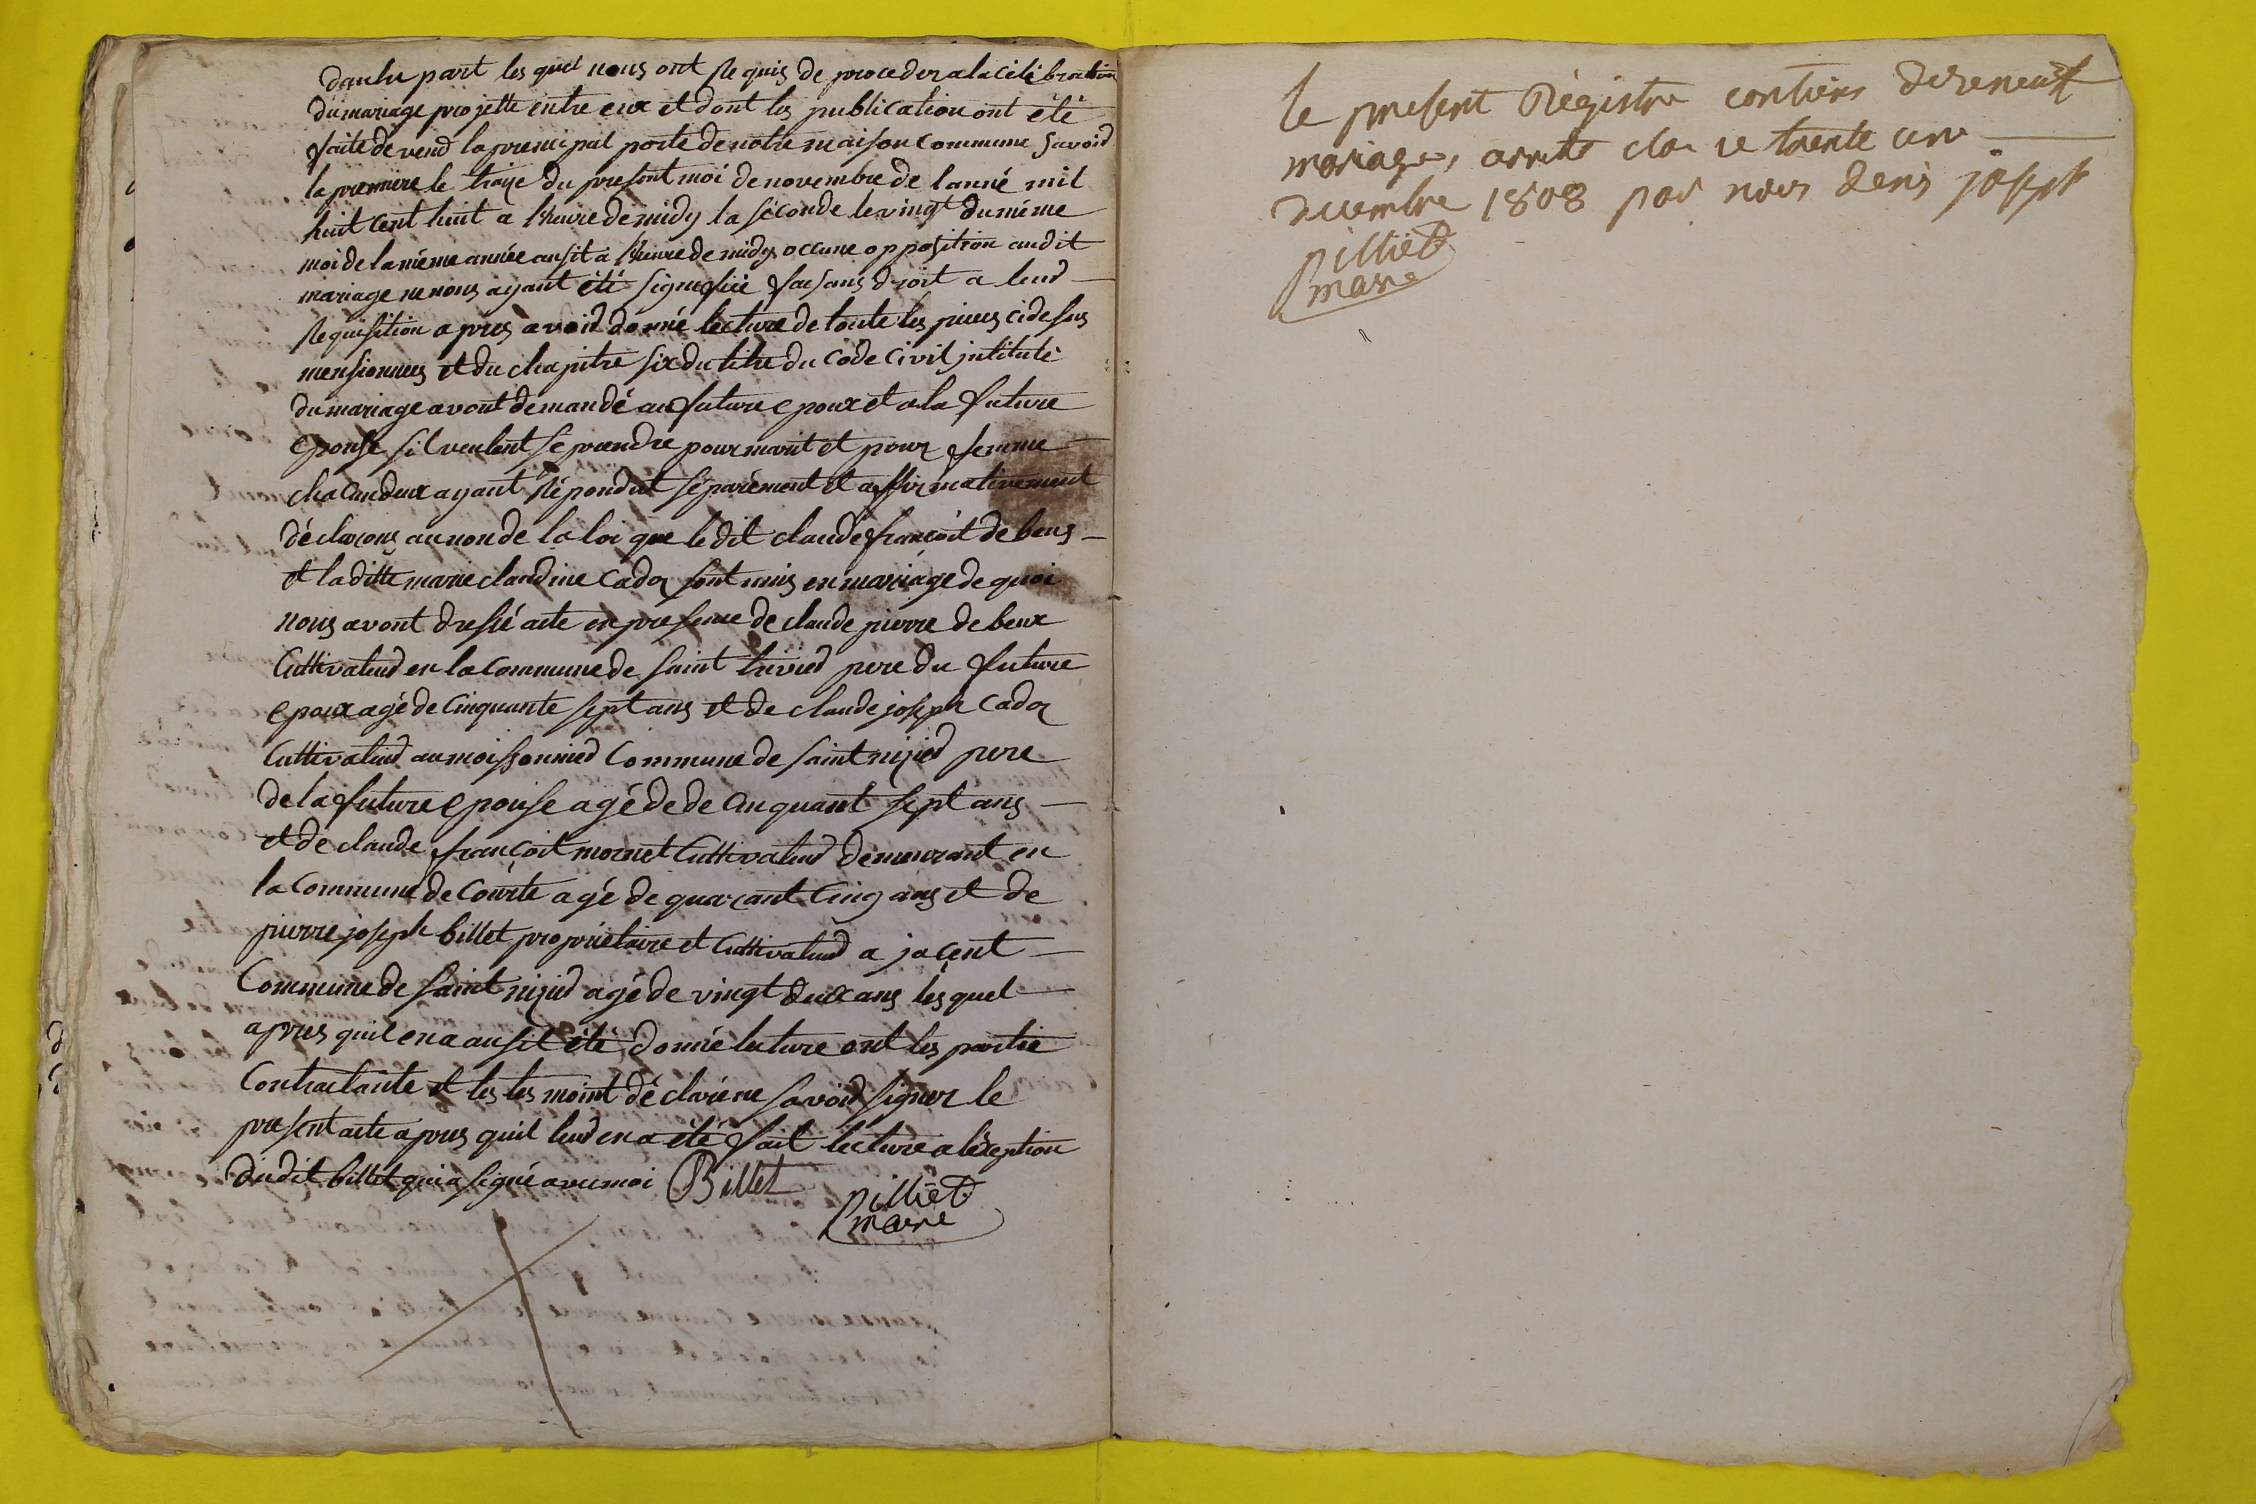 dautre part les quel nous ont Requis de proceder a la célébration
du mariage projette entre eux et dont les publication ont été
faite devend la principal porte de notre maison commune savoir
la première le traize du present moi de novembre de lanné mil
huit cent huit a lheure de midy la séconde le vingt du méme
moi de la méme année ausit a lheure de midy occune opposition audit
mariage ne nous ayant été signifiée faisans droit a leur
Requisition apres avoir donné lecture de toute les pieces cidessus
mensionnees et du chapitre six du titre du Code Civil jntitulé
du mariage avont demandé au future epoux et a la future
epouse sil veulent se prendre pour marit et pour femme
chacundeux ayant Répondut séparément et affirmativement
déclarons au non de la loi que le dit claude françoit debeus
et laditte marie claudine Cador sont unis en mariage de quoi
nous avont dressé acte en presence de claude pierre debeux
Cultivateur en la Commune de saint trivier pere du future
epoux agé de Cinquante sept ans et de claude joseph Cador
Cultivateur au moissonnier Commune de saint nizier pere
de la future epouse agé de de Cinquant sept ans
et de claude françoit mornet Cultivateur demeurant en
la Commune de Courte agé de quarant Cinq ans et de
pierre joseph billet proprietaire et Cultivateur a jacent
Commune de saint nizier agé de vingt deux ans lesquel
apres quil en a ausit été donné lecture ont les partie
Contractante et les tesmoint déclaré ne savoir signer le
present acte apres quil leur en a été fait lecture a léxeption
dudit billet qui a signé avec moi Billet
pilliet
maire
le present Régistre contiens dizeneuf
mariages, arreté clos ce trente un
decembre 1808 par nous denis joseph
pilliet
maire